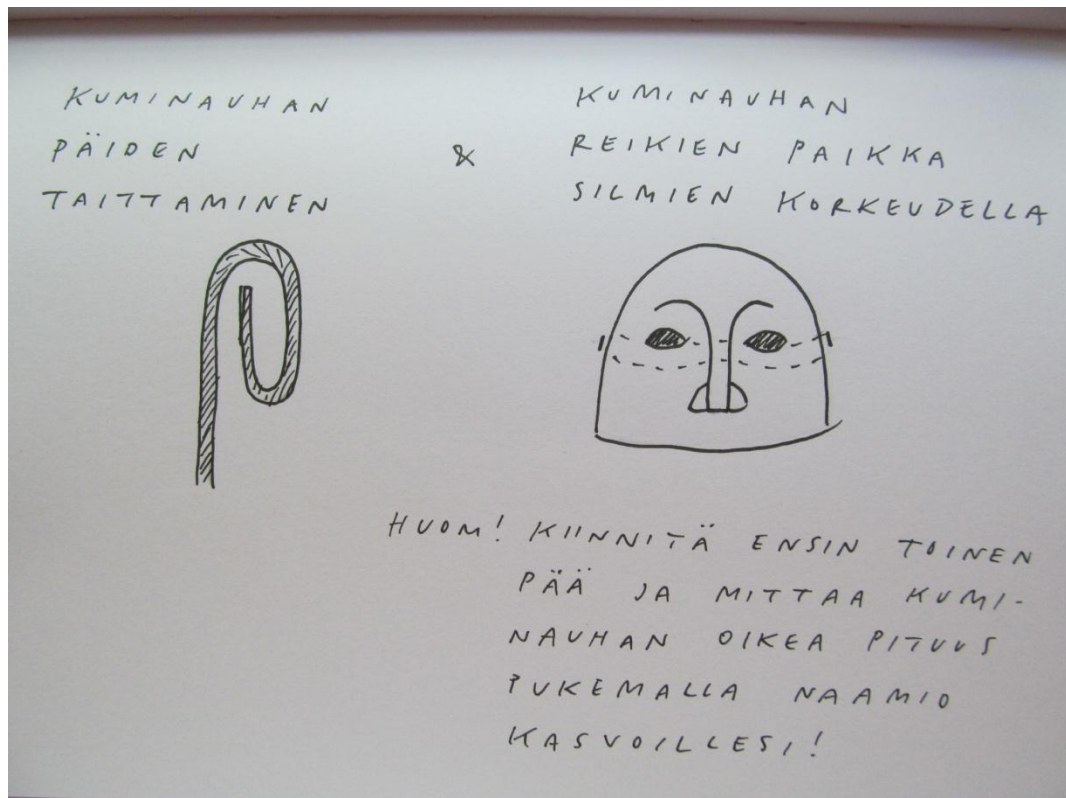 KUMINAUHAN
PÄIDEN
TAITTAMINEN
&
KUMINAUHAN
REIKIEN PAIKKA
SILMIEN KORKEUDELLA
HUOM! KIINNITÄ ENSIN TOINEN
PÄÄ JA MITTAA KUMI-
NAUHAN OIKEA PITUUS
PUKEMALLA NAAMIO
KASVOILLESI!